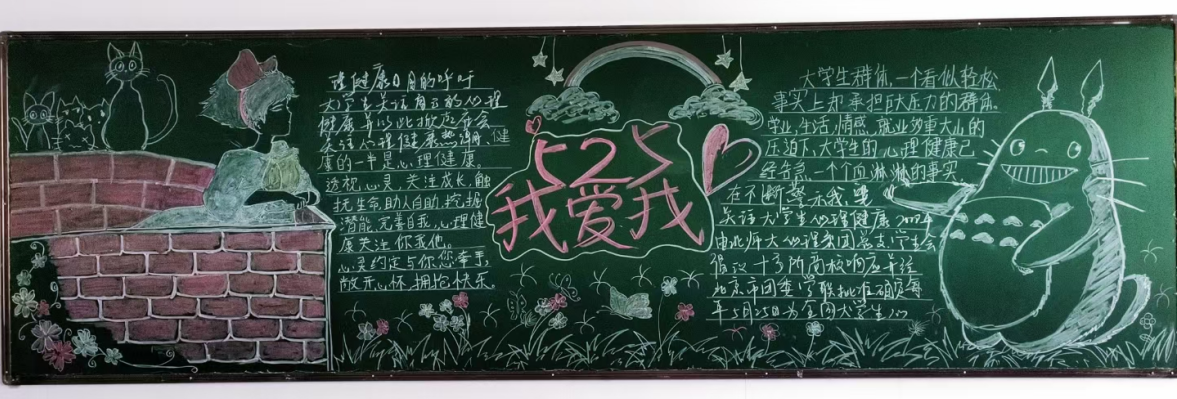 理健康日月的呼吁
大学生关注自己的心理
健康并以此掀起社会
关注心理健康热潮、健
康的一半是心理健康。
透视心灵,关注成长,触
抚生命,助人自助,挖掘
潜能,完善自我,心理健
康关注你我他。
心灵约定与你您牵手,
敞开心怀,拥抱快乐。
525
我爱我
大学生群体,一个看似轻松,
事实上却承担巨大压力的群体。
学业,生活,情感,就业多重大山的
压迫下,大学生的心理健康已
经告急,一个个血淋淋的事实,
在不断警示我们,要
关注大学生心理健康2004
由北师大心理系团总支学生会
倡议,十多所高校响应并经
北京市团委学联批准确定每
年5月25日为全国大学生心